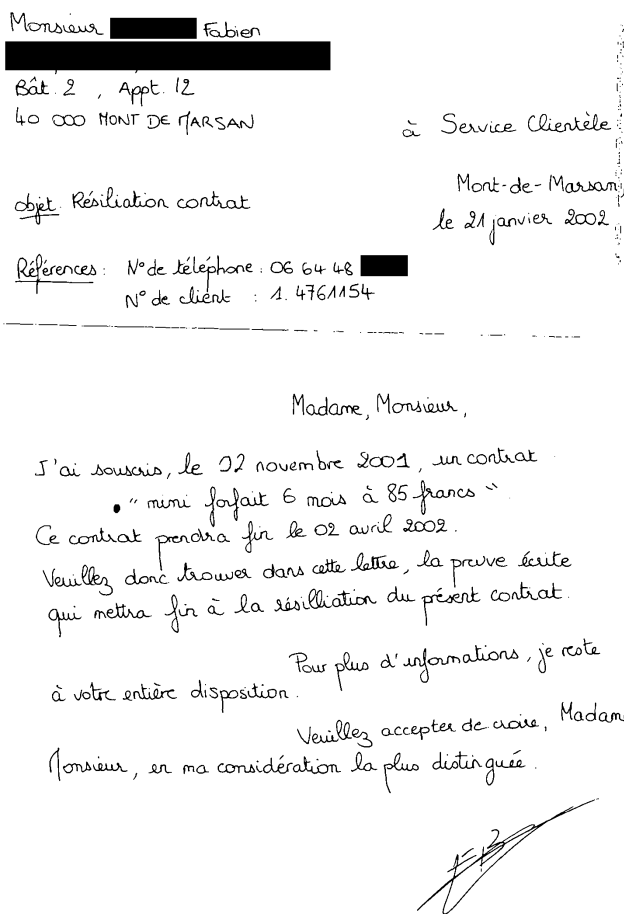 Monsieur Fabien
Bât. 2 , Appt. 12
40 000 MONT DE MARSAN
à Service Clientèle
Mont-de-Marsan,
le 21 janvier 2002
objet Résiliation contrat
Références : N° de téléphone : 06 64 48
N° de client : 1. 4761154
Madame, Monsieur,
J'ai souscris, le 02 novembre 2001, un contrat
" mini forfait 6 mois à 85 francs "
Ce contrat prendra fin le 02 avril 2002.
Veuillez donc trouver dans cette lettre, la preuve écrite
qui mettra fin à la résilliation du présent contrat.
Pour plus d'informations, je reste
à votre entière disposition.
Veuillez accepter de croire, Madame
Monsieur, en ma considération la plus distinguée.